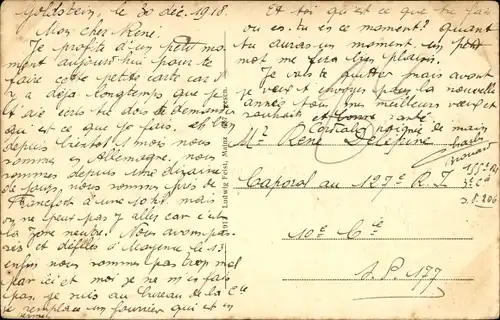 Goldstein, le 30 déc. 1918.
Mon cher René:
Je profite d'un petit mo-
ment aujourd'hui pour te
faire cette petite carte car il
y a déjà longtemps que je
t'aie écris tu dois te demander
qu'est ce que je fais, et bien
depuis bientôt 1 mois nous
sommes en Allemagne, nous
sommes depuis une dizaine
de jours, nous sommes près de
Francfort à une 10 kil. mais
on ne peux pas y aller car c'est
la zone neutre! Nous avons pas
sés et défilés à Mayence le 13
enfin nous sommes pas trop mal
par ici et moi je ne m'en fais
pas, je suis au bureau de la Cie
je remplace un fourrier qui est en
perme
Et toi qu'est ce que tu fais
ou es-tu en ce moment? quant
tu auras un moment, un petit
mot me fera très plaisir.
Je vais te quitter mais avant
je veux t'envoyer pour la nouvelle
année tous mes meilleurs vœux et
souhaits et bonne santé
Cordiale poignée de main
Charles
155e R.I.
S.P. 206
Ludwig Feist, Mainz
Mr. René Delépine
Caporal au 127e R.I.
10e Cie
S.P. 177